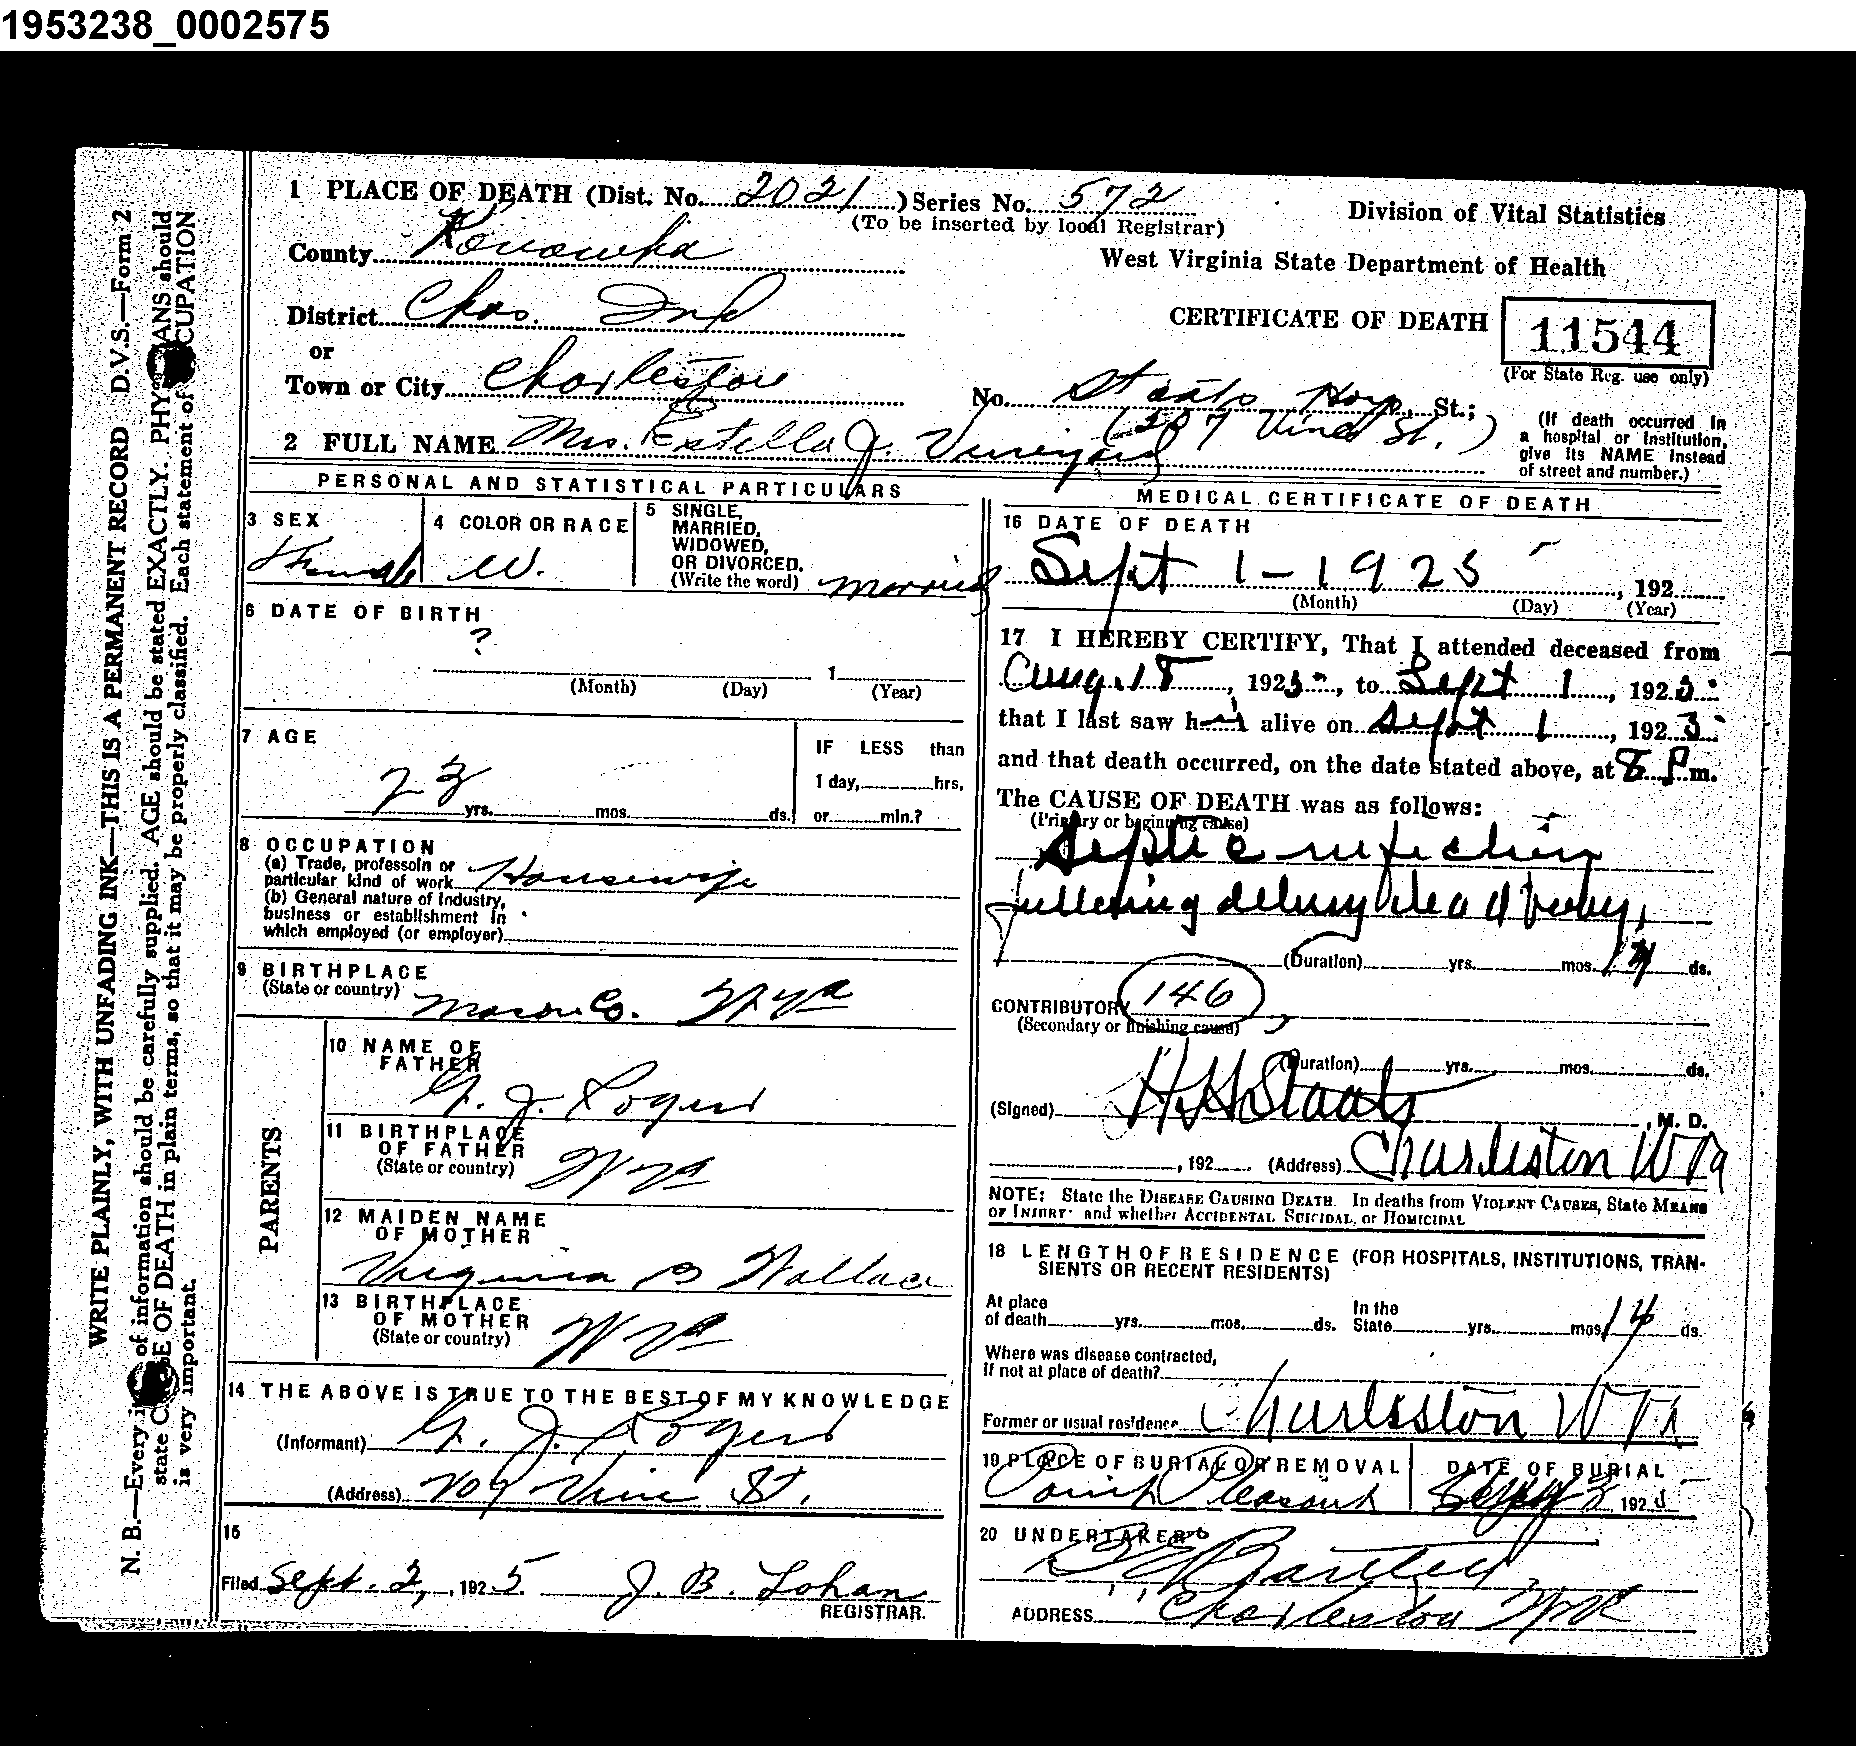 1953238_0002575
WRITE PLAINLY, WITH UNFADING INK—THIS IS A PERMANENT RECORD D.V.S.—Form 2
N. B.—Every i of information should be carefully supplied. AGE should be stated EXACTLY. PHY ANS should
state C E OF DEATH in plain terms, so that it may be properly classified. Each statement of CUPATION
is very important.
1 PLACE OF DEATH (Dist. No. 2021 ) Series No. 572
(To be inserted by local Registrar)
Division of Vital Statistics
County Kanawha
West Virginia State Department of Health
District Chas. Ind
CERTIFICATE OF DEATH 11544
(For State Reg. use only)
or
Town or City Charleston
No. Staats Hosp. St.;
(207 Vine St.)
(If death occurred in
a hospital or institution,
give its NAME instead
of street and number.)
2 FULL NAME Mrs. Estella J. Vineyard
PERSONAL AND STATISTICAL PARTICULARS
3 SEX Female
4 COLOR OR RACE W.
5 SINGLE,
MARRIED,
WIDOWED,
OR DIVORCED.
(Write the word) married
6 DATE OF BIRTH
?
1
(Month) (Day) (Year)
7 AGE
23 yrs. mos. ds.
IF LESS than
1 day, hrs,
or min.?
8 OCCUPATION
(a) Trade, professoin or
particular kind of work Housewife
(b) General nature of Industry,
business or establishment in
which employed (or employer)
9 BIRTHPLACE
(State or country) Mason Co. W Va
PARENTS
10 NAME OF
FATHER
G. J. Rogers
11 BIRTHPLACE
OF FATHER
(State or country) W Va
12 MAIDEN NAME
OF MOTHER
Virginia B Wallace
13 BIRTHPLACE
OF MOTHER
(State or country) W Va
14 THE ABOVE IS TRUE TO THE BEST OF MY KNOWLEDGE
(Informant) G. J. Rogers
(Address) 207 Vine St.
15
Filed Sept. 2, 1925 J. B. Lohan
REGISTRAR.
MEDICAL CERTIFICATE OF DEATH
16 DATE OF DEATH
Sept 1-1925 , 192
(Month) (Day) (Year)
17 I HEREBY CERTIFY, That I attended deceased from
Aug. 18, 1925, to Sept 1, 1925
that I last saw h alive on Sept 1, 1925
and that death occurred, on the date stated above, at 8 P m.
The CAUSE OF DEATH was as follows:
(Primary or beginning cause)
Septic infection
following delivery dead baby,
(Duration) yrs. mos. 14 ds.
CONTRIBUTORY 146
(Secondary or finishing cause)
(Duration) yrs. mos. ds.
(Signed) H.H. Staats, M. D.
, 192 (Address) Charleston W Va
NOTE: State the DISEASE CAUSING DEATH. In deaths from VIOLENT CAUSES, State MEANS
OF INJURY and whether ACCIDENTAL SUICIDAL, or HOMICIDAL
18 LENGTH OF RESIDENCE (FOR HOSPITALS, INSTITUTIONS, TRAN-
SIENTS OR RECENT RESIDENTS)
At place
of death yrs. mos. ds.
In the
State yrs. mos. 14 ds.
Where was disease contracted,
if not at place of death?
Former or usual residence Charleston W Va
19 PLACE OF BURIAL OR REMOVAL
Point Pleasant
DATE OF BURIAL
Sept 3 1925
20 UNDERTAKER
Bartlett
ADDRESS Charleston W Va